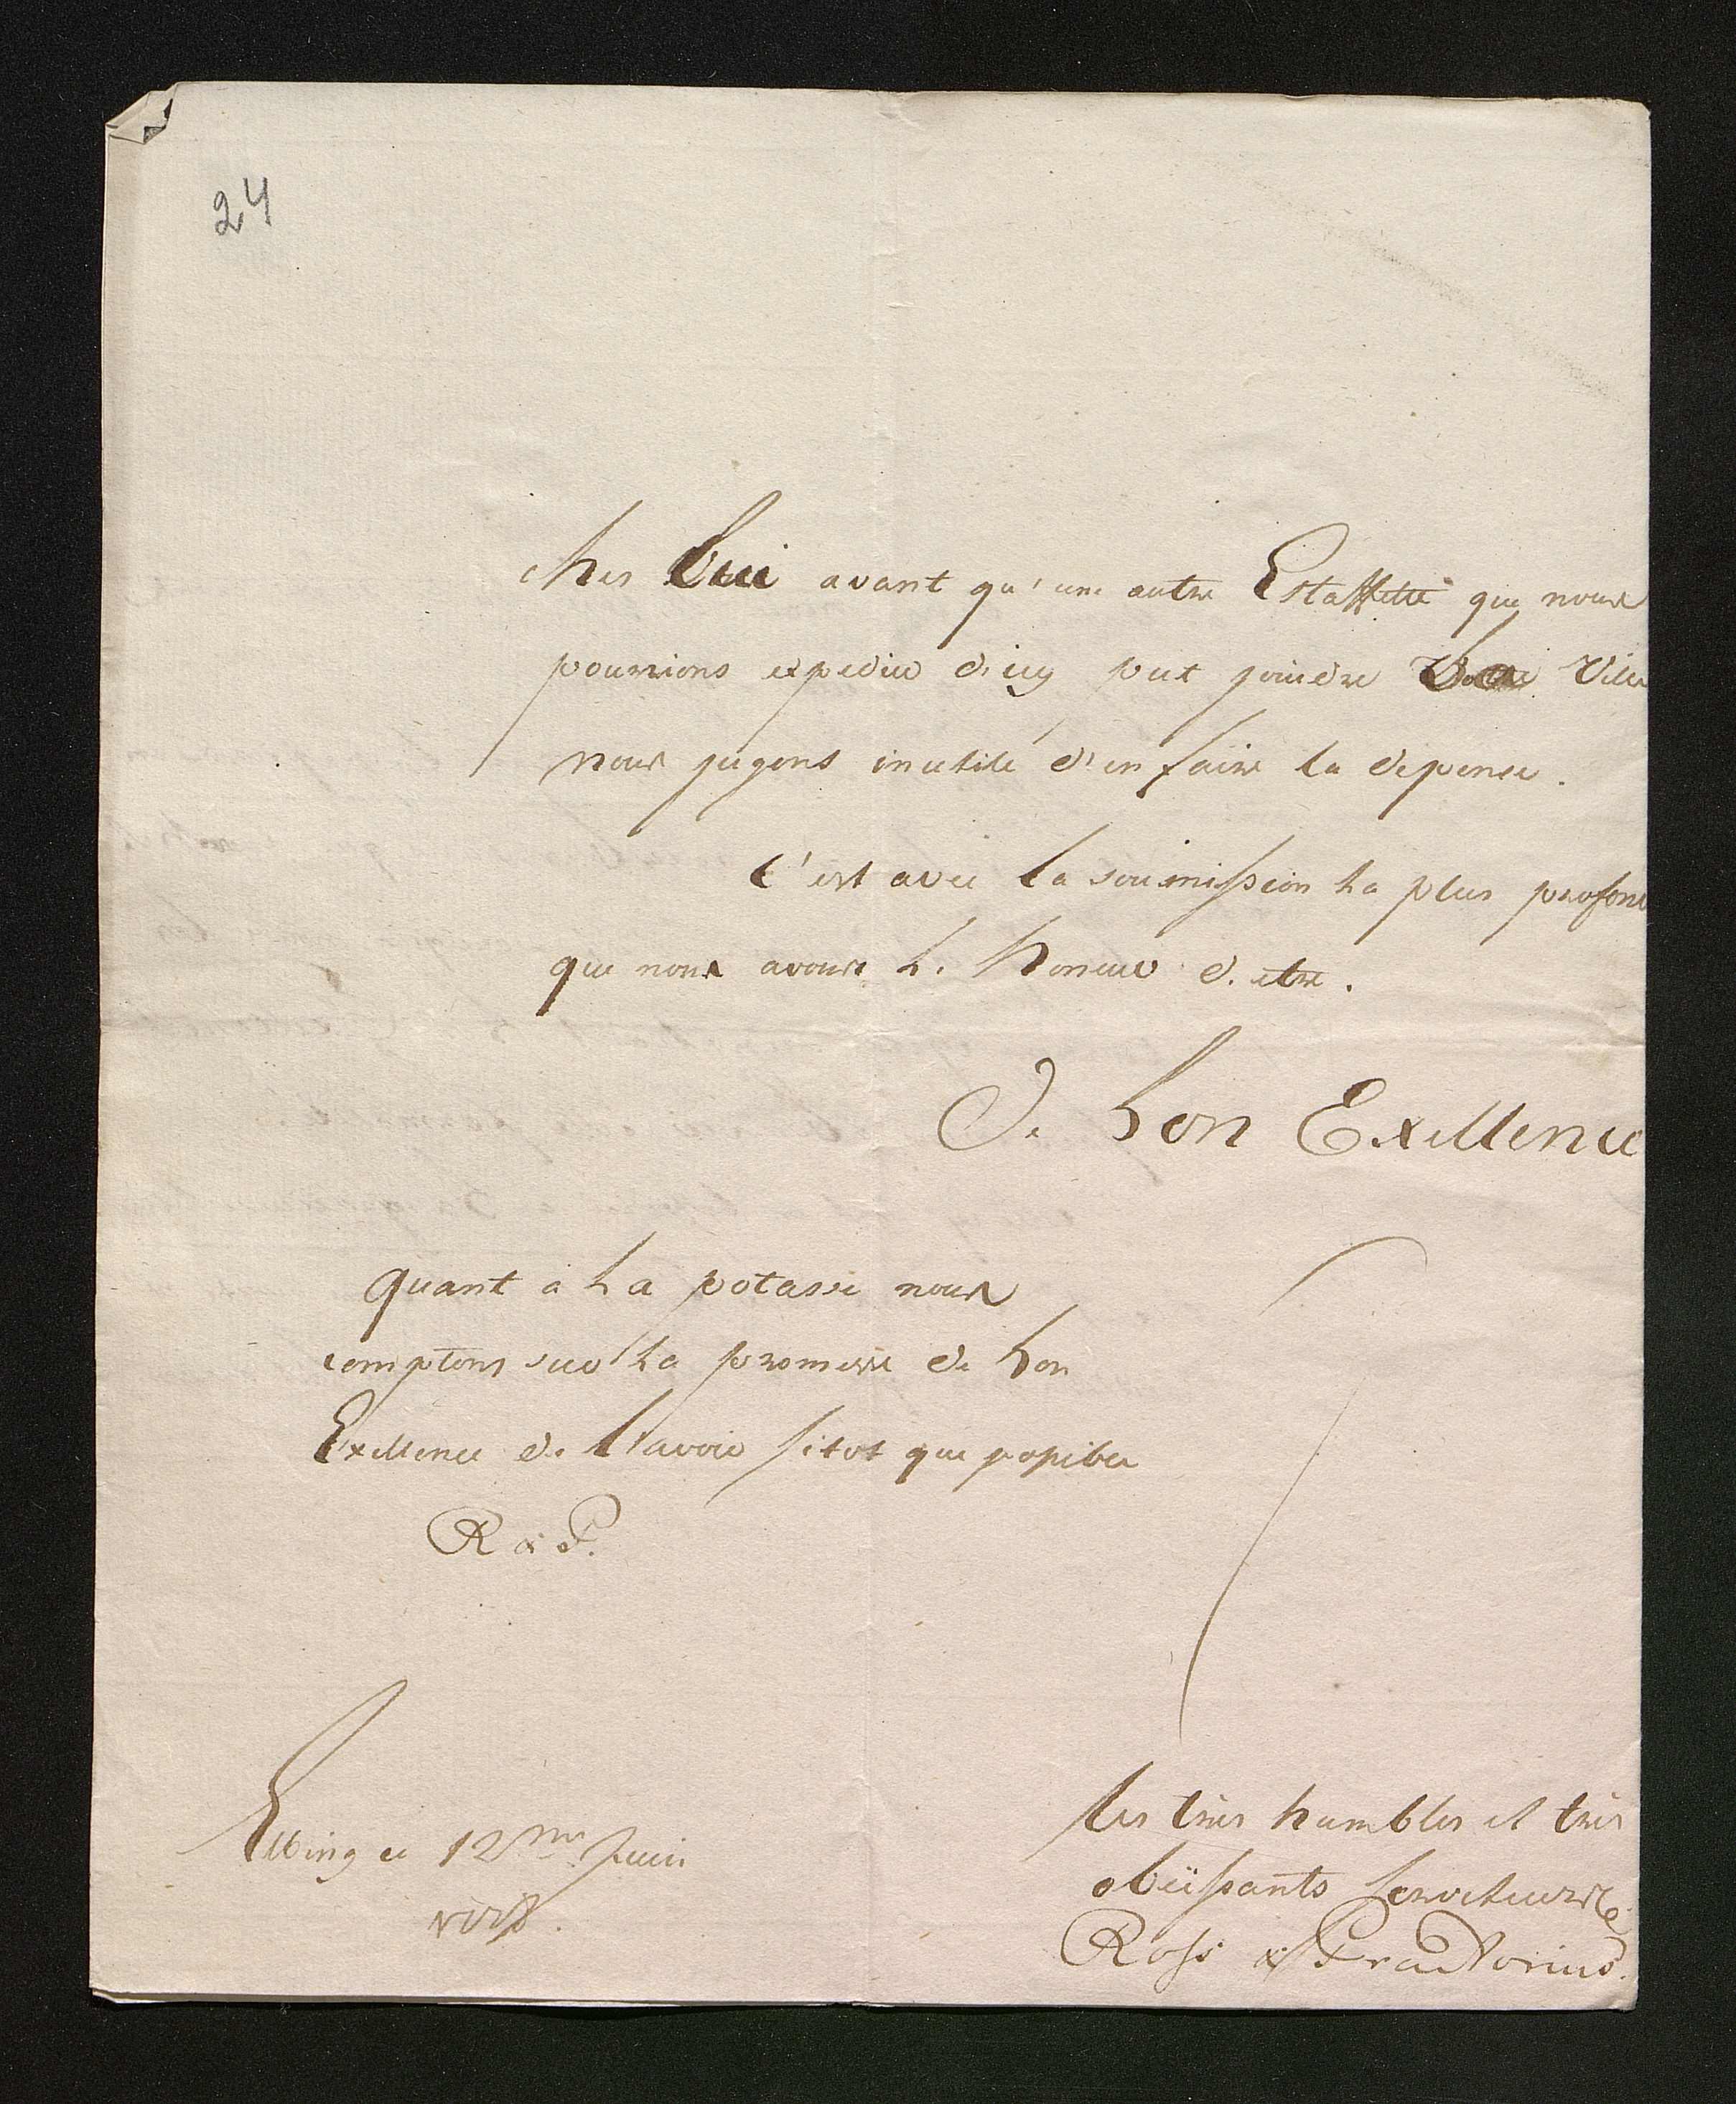 24
ches Lui avant qu'une autre Estaffette que nous
pourrions expedier d'icy put joindre Ville
nous jugons inutile d'en faire la depense.
C'est avec la soumission la plus profond
que nous avons L. honeur d. etre.
De Son Exellence
quant à La potasse nous
comptons sur La promesse de Son
Exellence de L'avoir sitot que possible
R & P.
Elbing ce 12me Juin
les tres humbles et tres
obeissants Serviteurs
Ross & Praetorius.